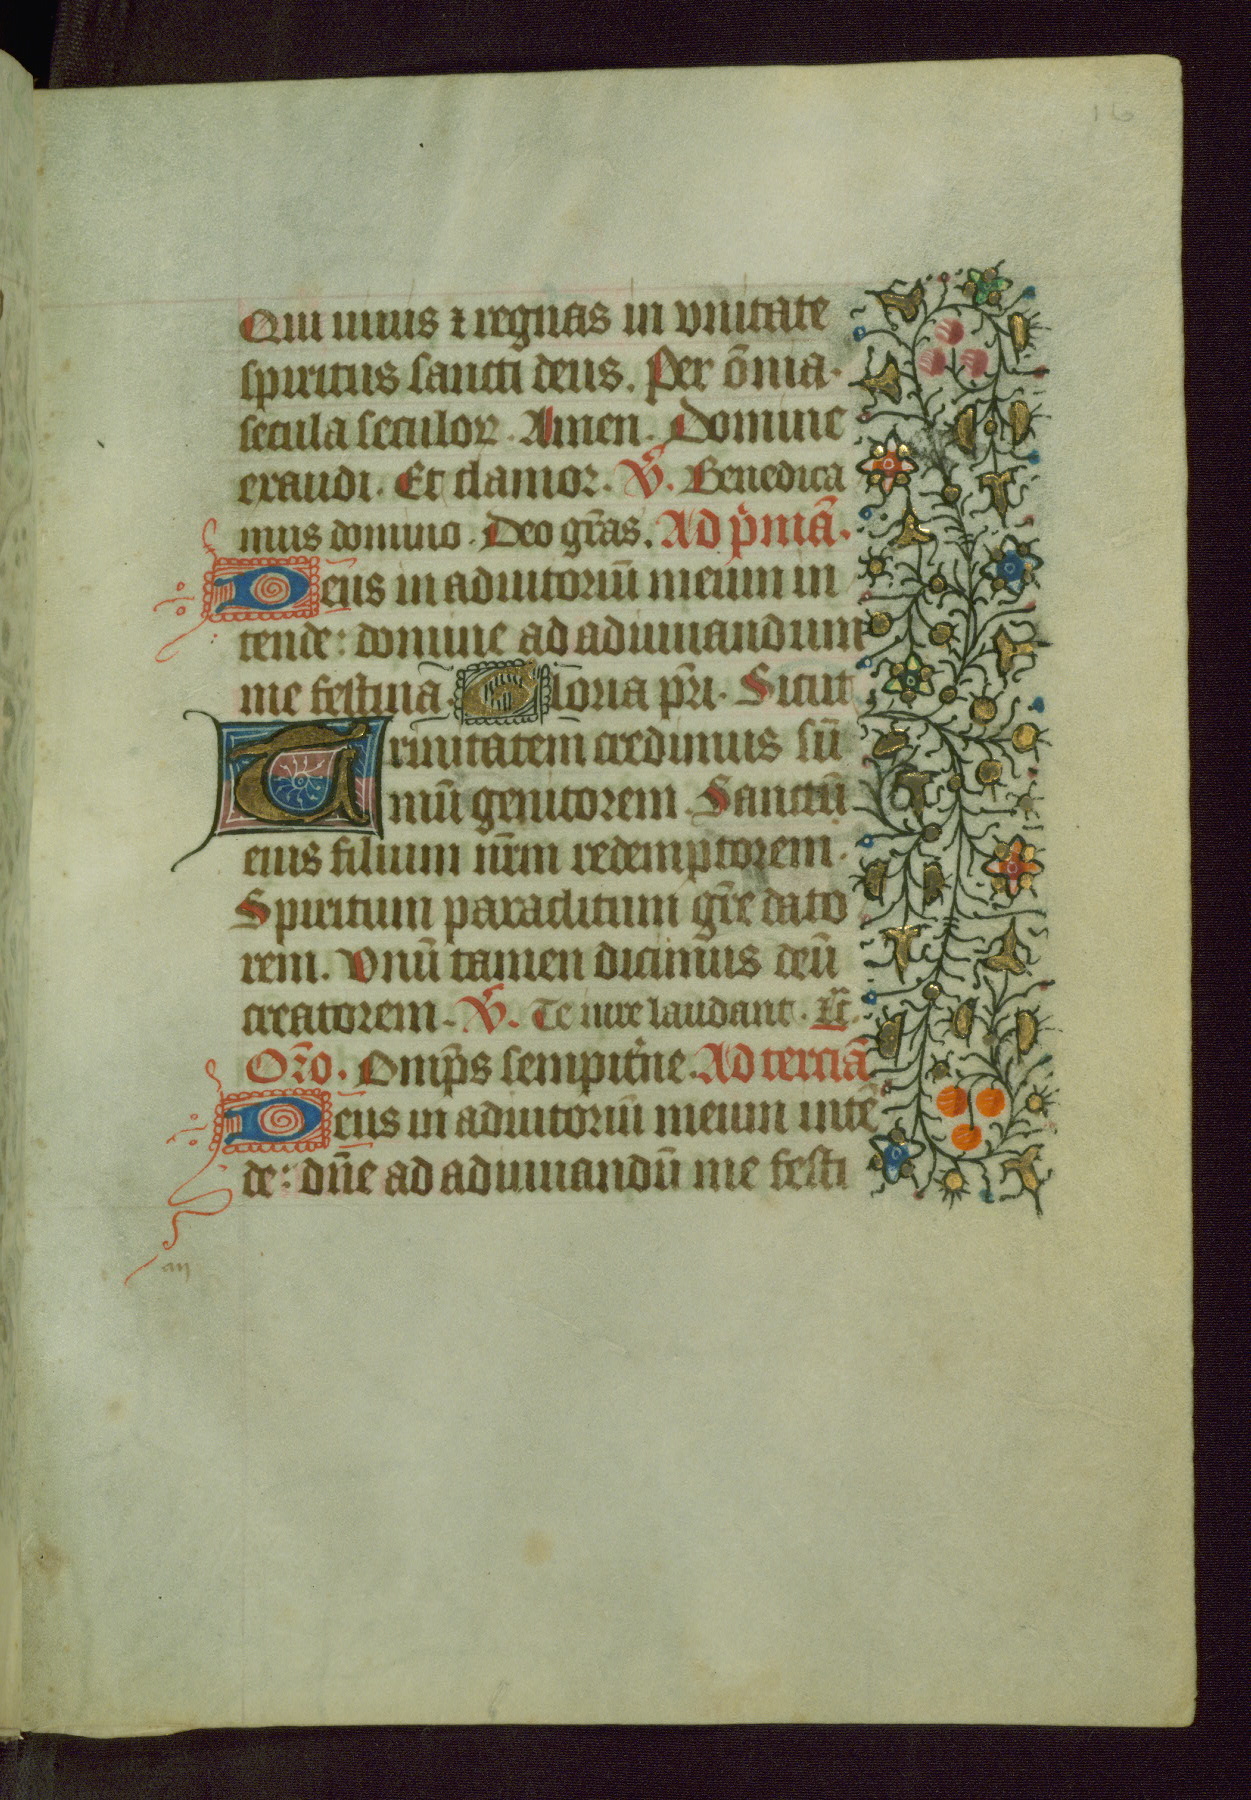 16
Qui uiuis ⁊ regnas in vnitate
spiritus sancti deus. Per om̄ia.
secula seculoꝝ. Amen. Domine
exaudi. Et clamor. V̄. Benedica
mus domino. Deo gr̄as. Ad pͥmā.
Deus in adiutoriū meum in
tende: domine ad adiuuandum
me festinā. Gloria pr̄i. Sicut
Trinitatem credimus sū
mū genitorem. Sanctū
eius filium nr̄m redemptorem.
Spiritum paraclitum gr̄e dato
rem. Vnū tamen dicimus deū
creatorem. V̄. Te iure laudant. Et̄.
Or̄o. Omp̄s sempit̄ne. Ad terciā
Deus in adiutoriū meum intē
de: dn̄e ad adiuuandū me festi